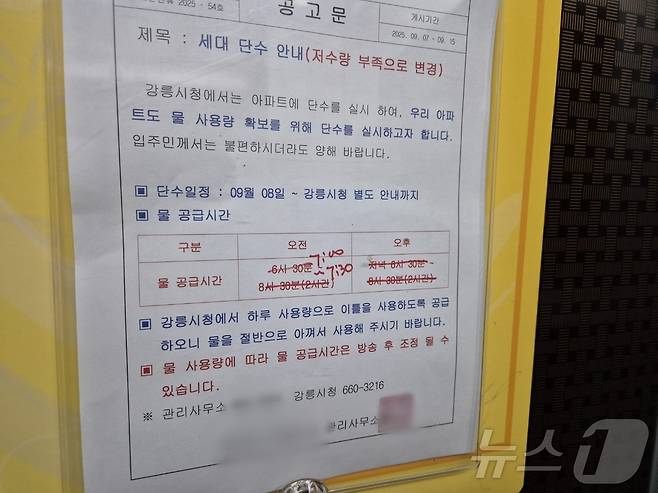 2025 - 54호
공고문
게시기간
2025. 09. 07 ~ 09. 15
제목 : 세대 단수 안내(저수량 부족으로 변경)
강릉시청에서는 아파트에 단수를 실시 하여, 우리 아파
트도 물 사용량 확보를 위해 단수를 실시하고자 합니다.
입주민께서는 불편하시더라도 양해 바랍니다.
▣ 단수일정 : 09월 08일 ~ 강릉시청 별도 안내까지
▣ 물 공급시간
구분 오전 오후
물 공급시간 6시 30분 ~ 8시 30분(2시간) 7:00 ~7:30 저녁 6시 30분~ 8시 30분(2시간)
▣ 강릉시청에서 하루 사용량으로 이틀을 사용하도록 공급
하오니 물을 절반으로 아껴서 사용해 주시기 바랍니다.
▣ 물 사용량에 따라 물 공급시간은 방송 후 조정 될 수
있습니다.
※ 관리사무소 강릉시청 660-3216
관리사무소
뉴스1